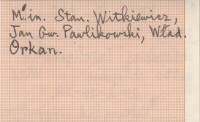 M. in. Stan. Witkiewicz,
Jan Gw. Pawlikowski, Wład.
Orkan.